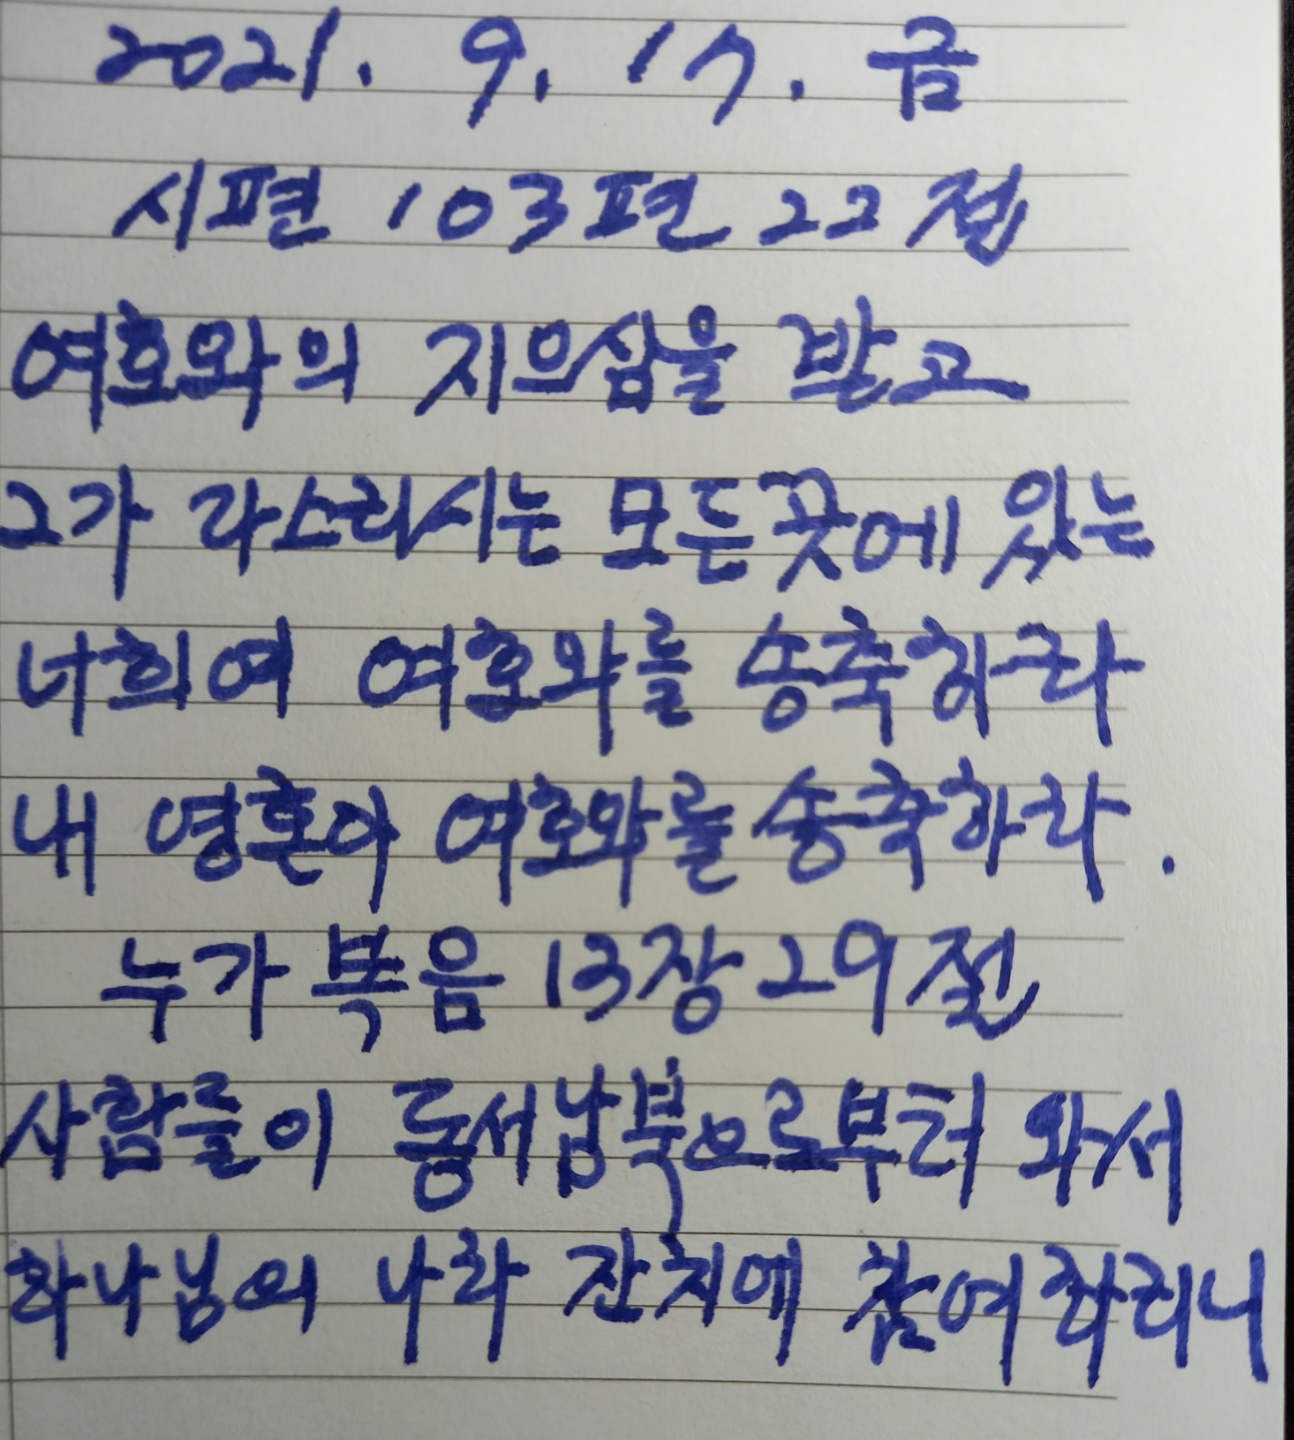 2021. 9. 17. 금
시편 103편 22절
여호와의 지으심을 받고
그가 다스리시는 모든곳에 있는
너희여 여호와를 송축하라
내 영혼아 여호와를 송축하라.
누가복음 13장 29절
사람들이 동서남북으로부터 와서
하나님의 나라 잔치에 참여하리니